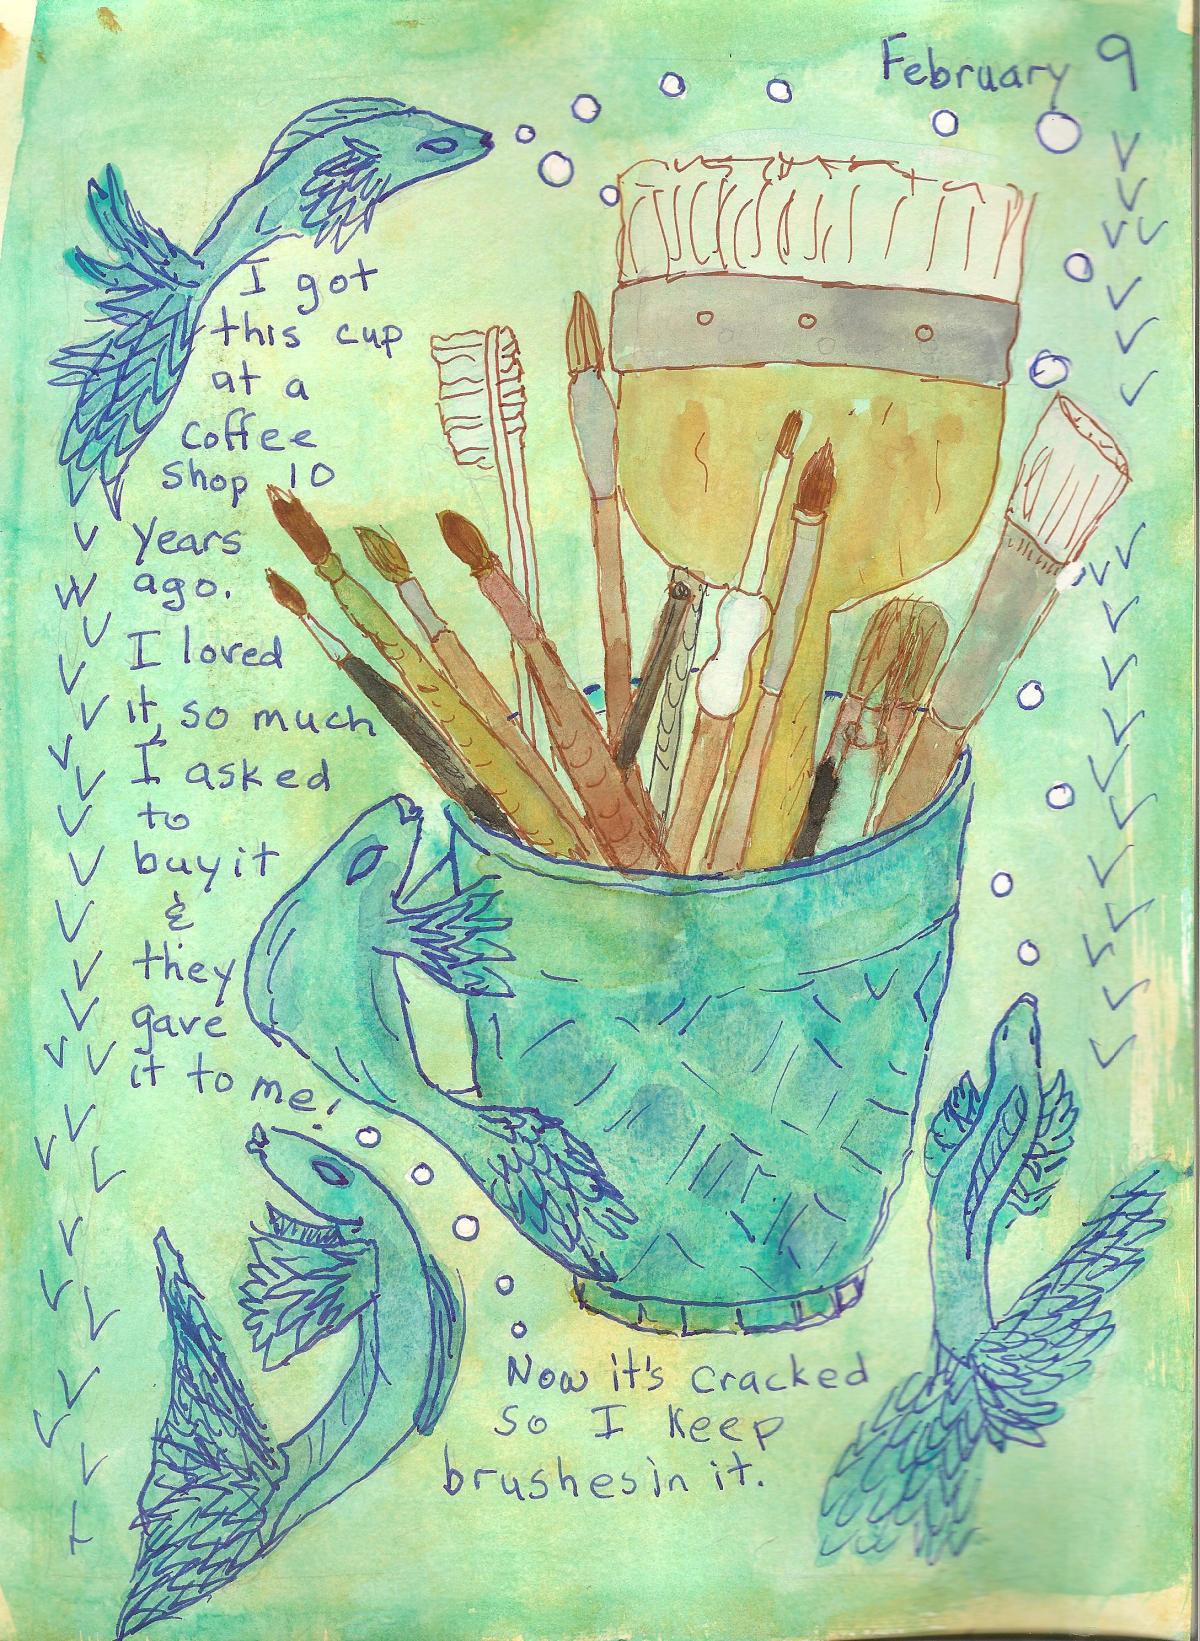 February 9
I got
this cup
at a
coffee
shop 10
years
ago.
I loved
it, so much
I asked
to
buy it
&
they
gave
it to me!
Now it's cracked
so I keep
brushes in it.